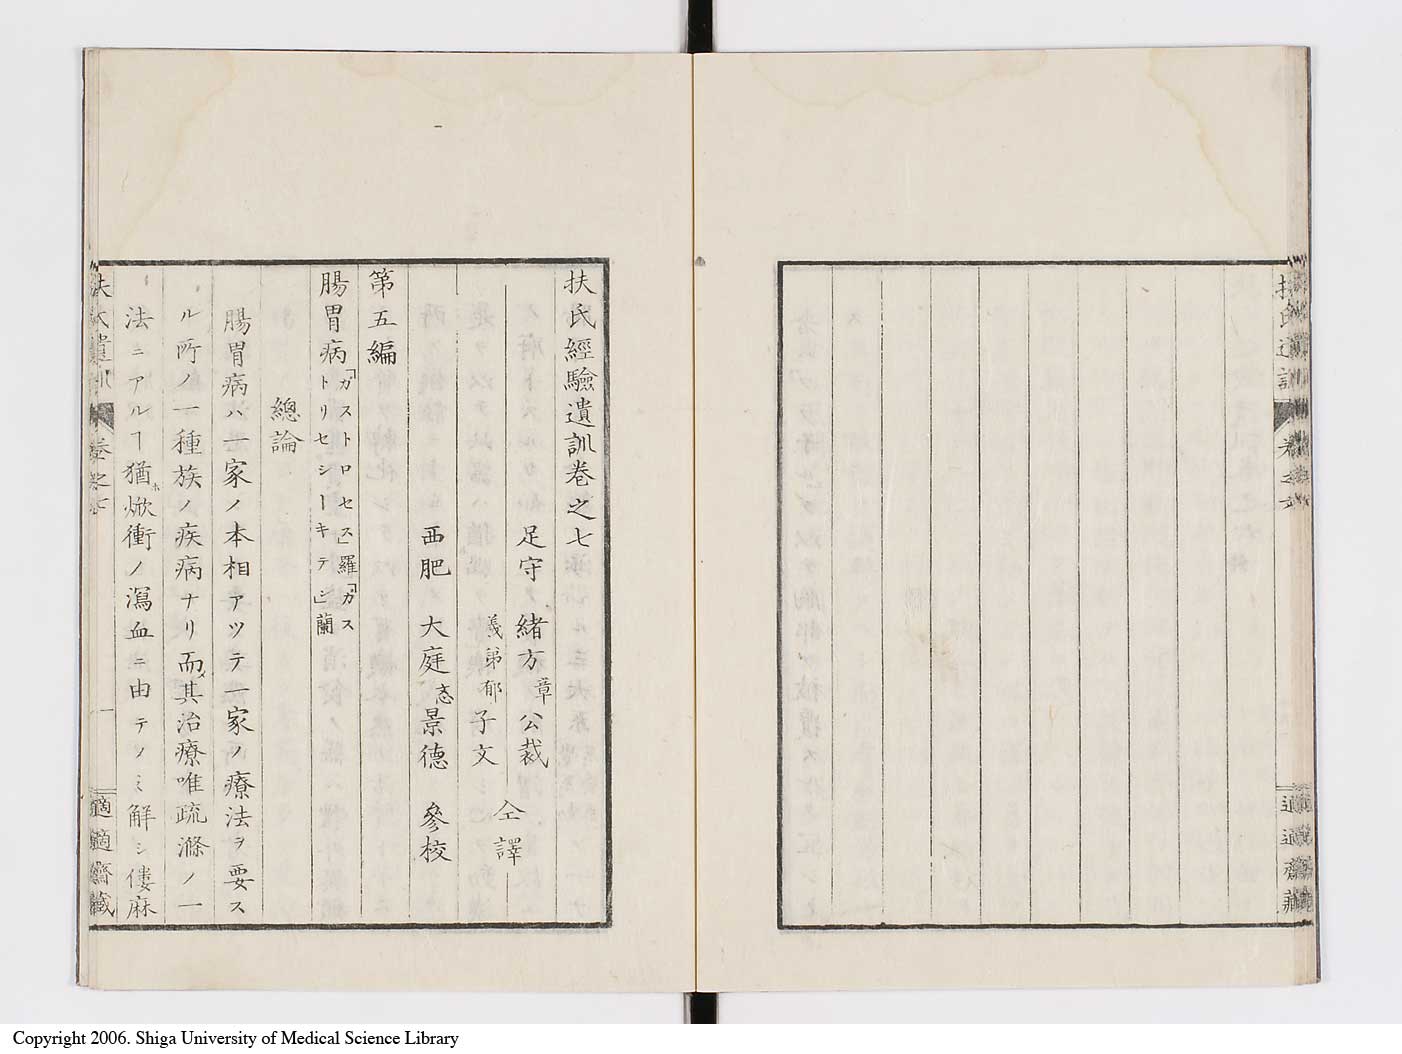 扶氏經驗遺訓卷之七
足守 緒方章公裁
義弟郁子文 仝譯
西肥 大庭忞景德 參校
第五編
腸胃病「ガストロセス」羅「ガストリセシーキテン」蘭
總論
腸胃病ハ一家ノ本相アツテ一家ノ療法ヲ要ス
ル所ノ一種族ノ疾病ナリ而〆其治療唯疏滌ノ一
法ニアルヿ猶ホ焮衝ノ瀉血ニ由テノミ解シ僂麻
扶氏遺訓 卷之七 一 適適齋藏
扶氏遺訓 卷之六 適適齋藏
Copyright 2006. Shiga University of Medical Science Library